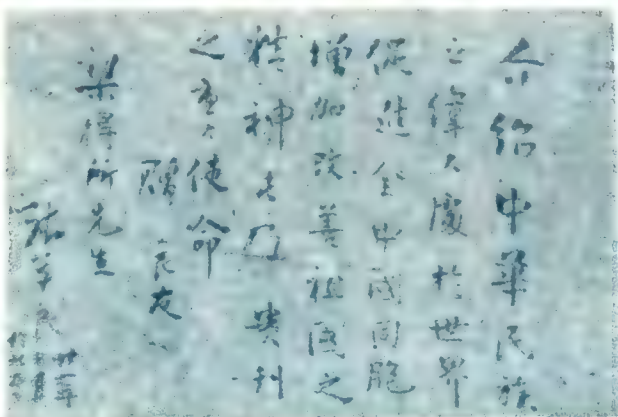 介紹中華民族
之偉大處於世界
促進全中國同胞
增加改善祖國之
精神者乃 貴刊
之重大使命
贈 良友
梁得所先生
張學良